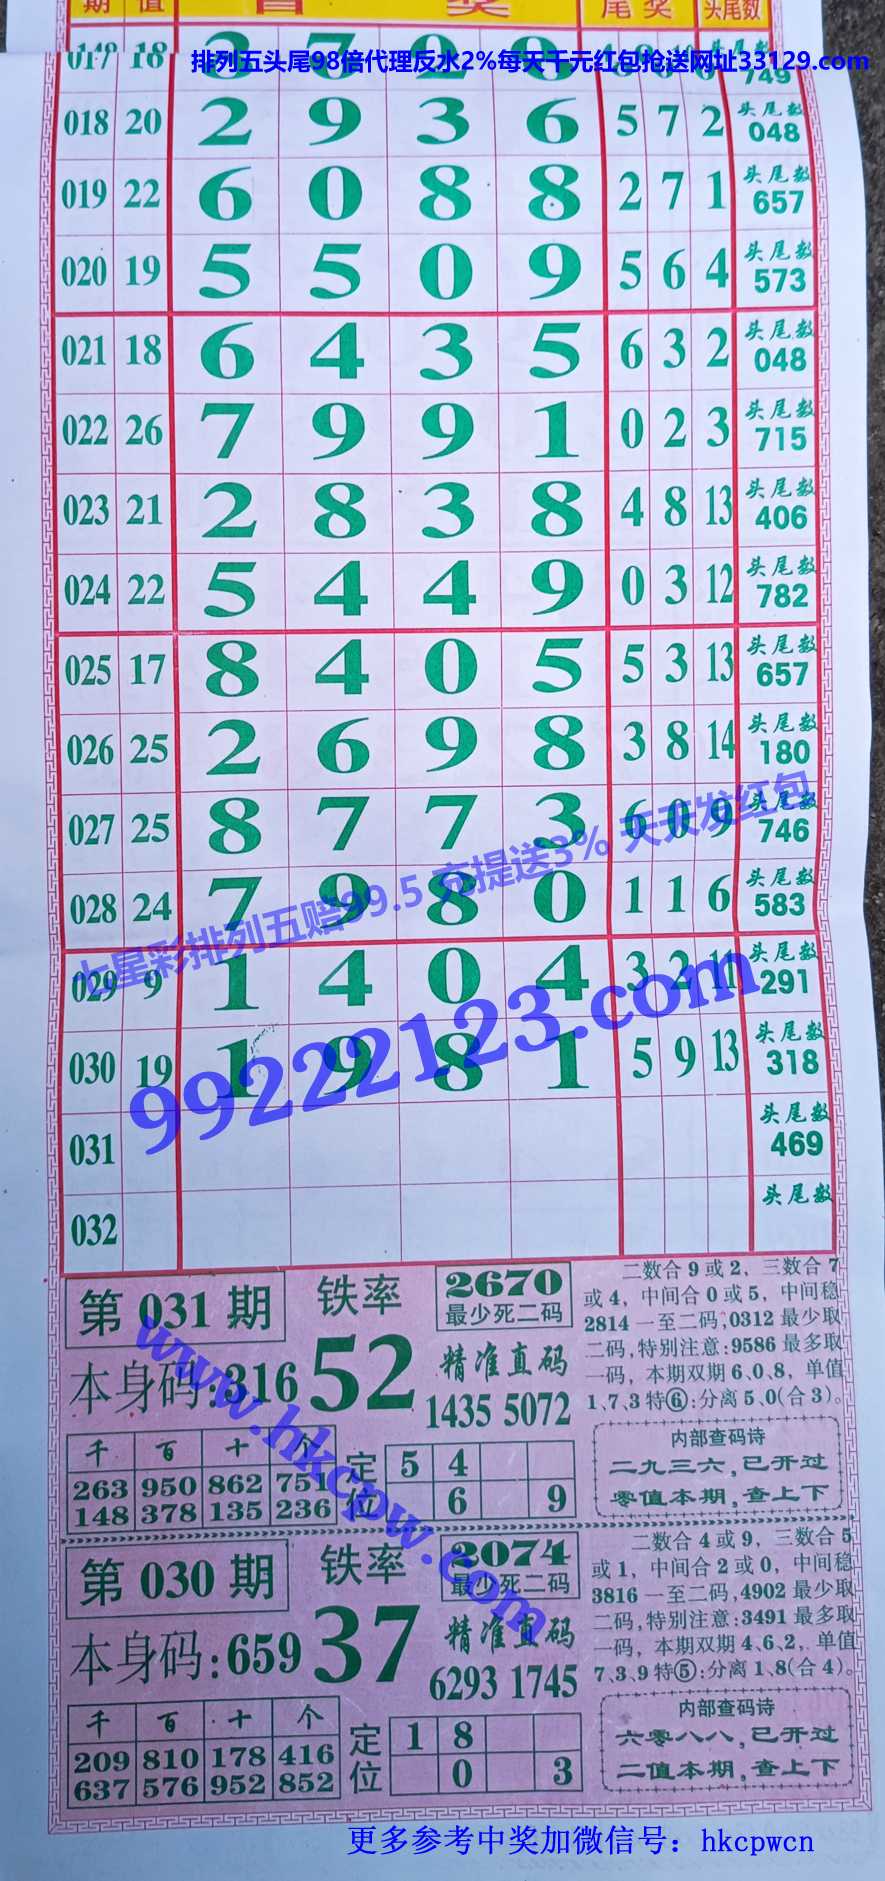 期 值 首 奖 尾奖 头尾数
排列五头尾98倍代理反水2%每天千元红包抢送网址33129.com
017 18 749
018 20 2 9 3 6 5 7 2 头尾数 048
019 22 6 0 8 8 2 7 1 头尾数 657
020 19 5 5 0 9 5 6 4 头尾数 573
021 18 6 4 3 5 6 3 2 头尾数 048
022 26 7 9 9 1 0 2 3 头尾数 715
023 21 2 8 3 8 4 8 13 头尾数 406
024 22 5 4 4 9 0 3 12 头尾数 782
025 17 8 4 0 5 5 3 13 头尾数 657
026 25 2 6 9 8 3 8 14 头尾数 180
027 25 8 7 7 3 6 0 9 头尾数 746
七星彩排列五赔99.5 充提送3% 天天发红包
028 24 7 9 8 0 1 1 6 头尾数 583
029 9 1 4 0 4 3 2 11 头尾数 291
99222123.com
030 19 1 9 8 1 5 9 13 头尾数 318
031 头尾数 469
032 头尾数
第 031 期 铁率 52
2670
最少死二码
本身码:316
精准直码
1435 5072
千 百 十 个
263 950 862 751
148 378 135 236
定位
5 4
6 9
二数合9或2，三数合7
或4，中间合0或5，中间稳
2814一至二码;0312最少取
二码,特别注意:9586最多取
一码，本期双期6、0、8，单值
1、7、3特⑥:分离5、0(合3)。
内部查码诗
二九三六,已开过
零值本期,查上下
www.hkcpw.com
第 030 期 铁率 37
2074
最少死二码
本身码:659
精准直码
6293 1745
千 百 十 个
209 810 178 416
637 576 952 852
定位
1 8
0 3
二数合4或9，三数合5
或1，中间合2或0，中间稳
3816一至二码,4902最少取
二码,特别注意:3491最多取
一码，本期双期4、6、2，单值
7、3、9特⑤:分离1、8(合4)。
内部查码诗
六零八八,已开过
二值本期,查上下
更多参考中奖加微信号：hkcpwcn